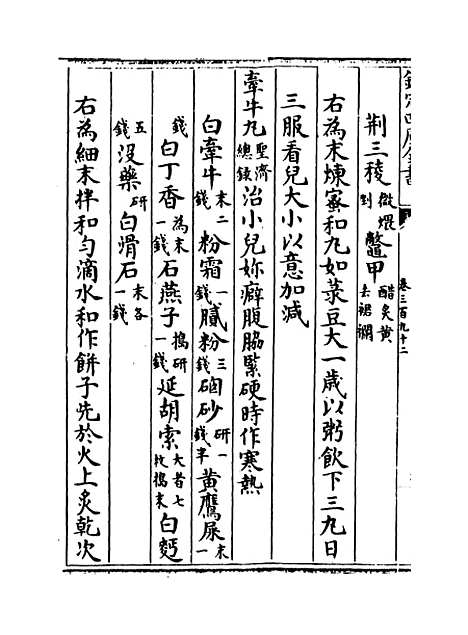 欽定四庫全書
卷三百九十二
荆三稜微煨剉 鱉甲醋炙黄去裙襴
右為末煉蜜和丸如菉豆大一歲以粥飲下三丸日
三服看兒大小以意加減
牽牛丸聖濟總録治小兒妳癖腹脇緊硬時作寒熱
白牽牛末二錢 粉霜一錢 膩粉三錢 硇砂研一錢半 黄鷹屎末一
錢 白丁香為末一錢 石燕子搗研一錢 延胡索大者七枚搗末 白麪
五錢 没藥研 白滑石末各一錢
右為細末拌和勻滴水和作餅子先於火上炙乾次